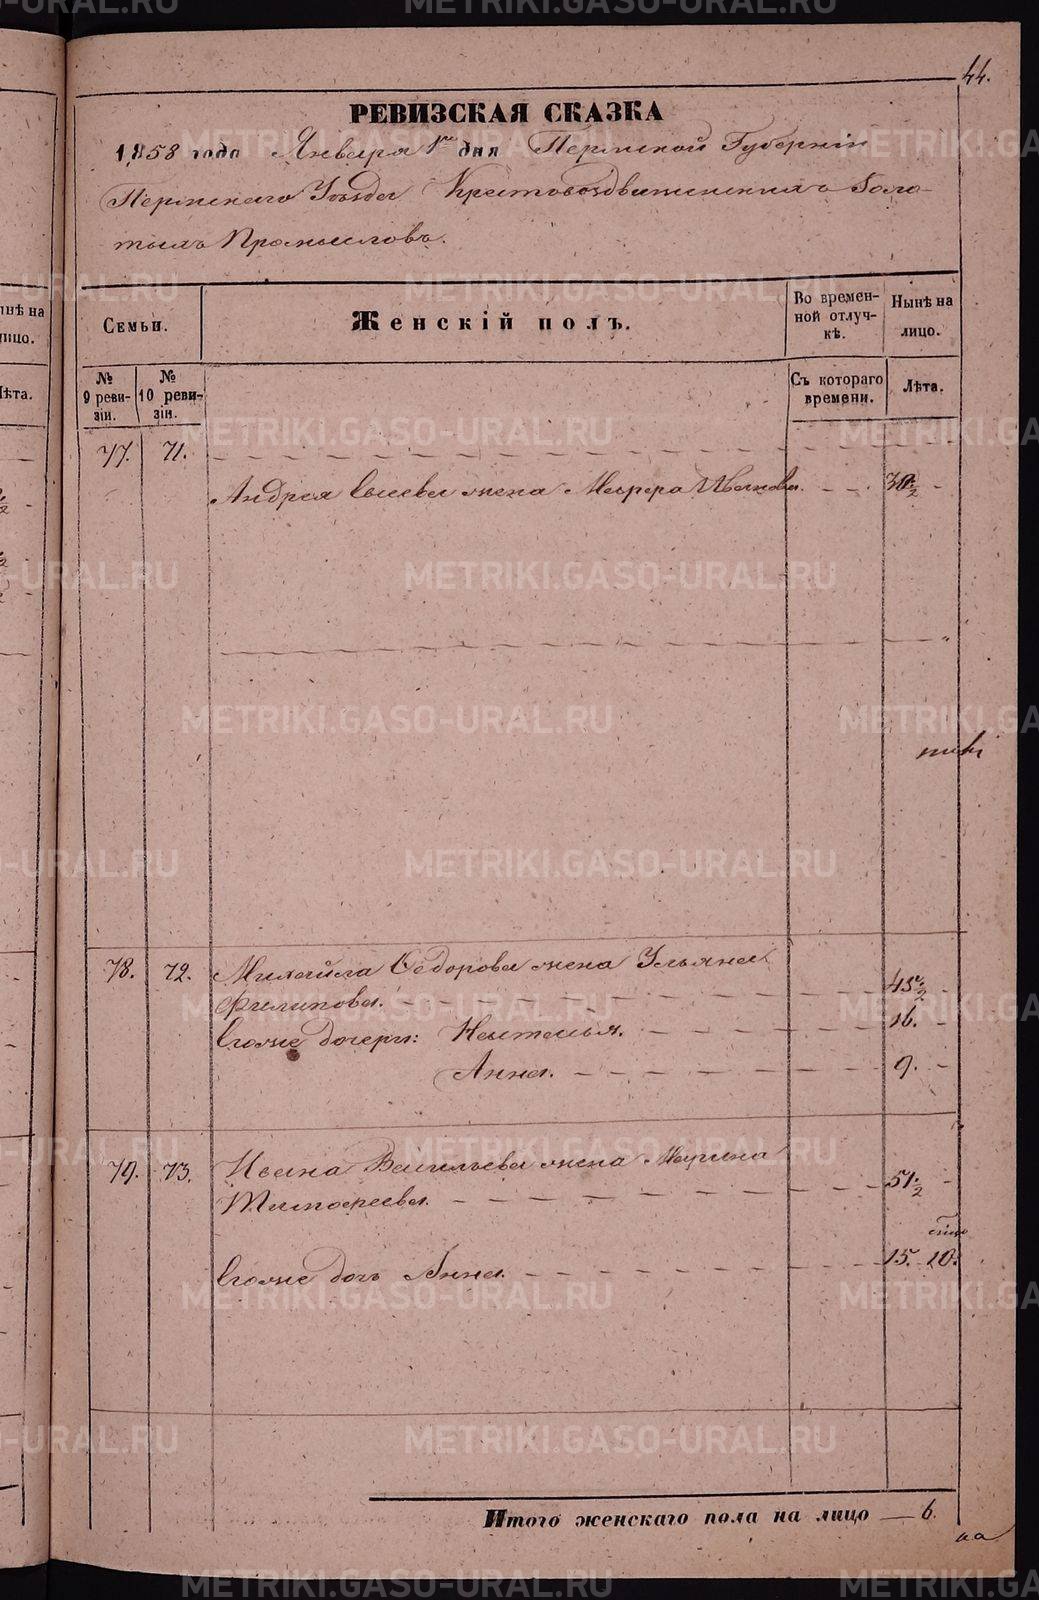 44.
РЕВИЗСКАЯ СКАЗКА
1858 года Января 1го дня Пермской Губернiи
Пермскаго Уѣзда Крестовоздвиженскихъ Золо-
тыхъ Промысловъ.
Семьи.
Женскiй полъ.
Во времен-
ной отлуч-
кѣ.
Нынѣ на
лицо.
№
9 реви-
зiи.
№
10 реви-
зiи.
Съ котораго
времени.
Лѣта.
77. 71.
Андрея жена Ивановна.
78. 72. Михайла Ѳедорова жена Ульяна
Филипова. 45½
Егоже дочери: Наталья. 16.
Анна. 9.
79. 73. Ивана Васильева жена Марина
Тимофеева. 51½
Егоже дочь Анна. 15. 10.
Итого женскаго пола на лицо 6.
METRIKI.GASO-URAL.RU